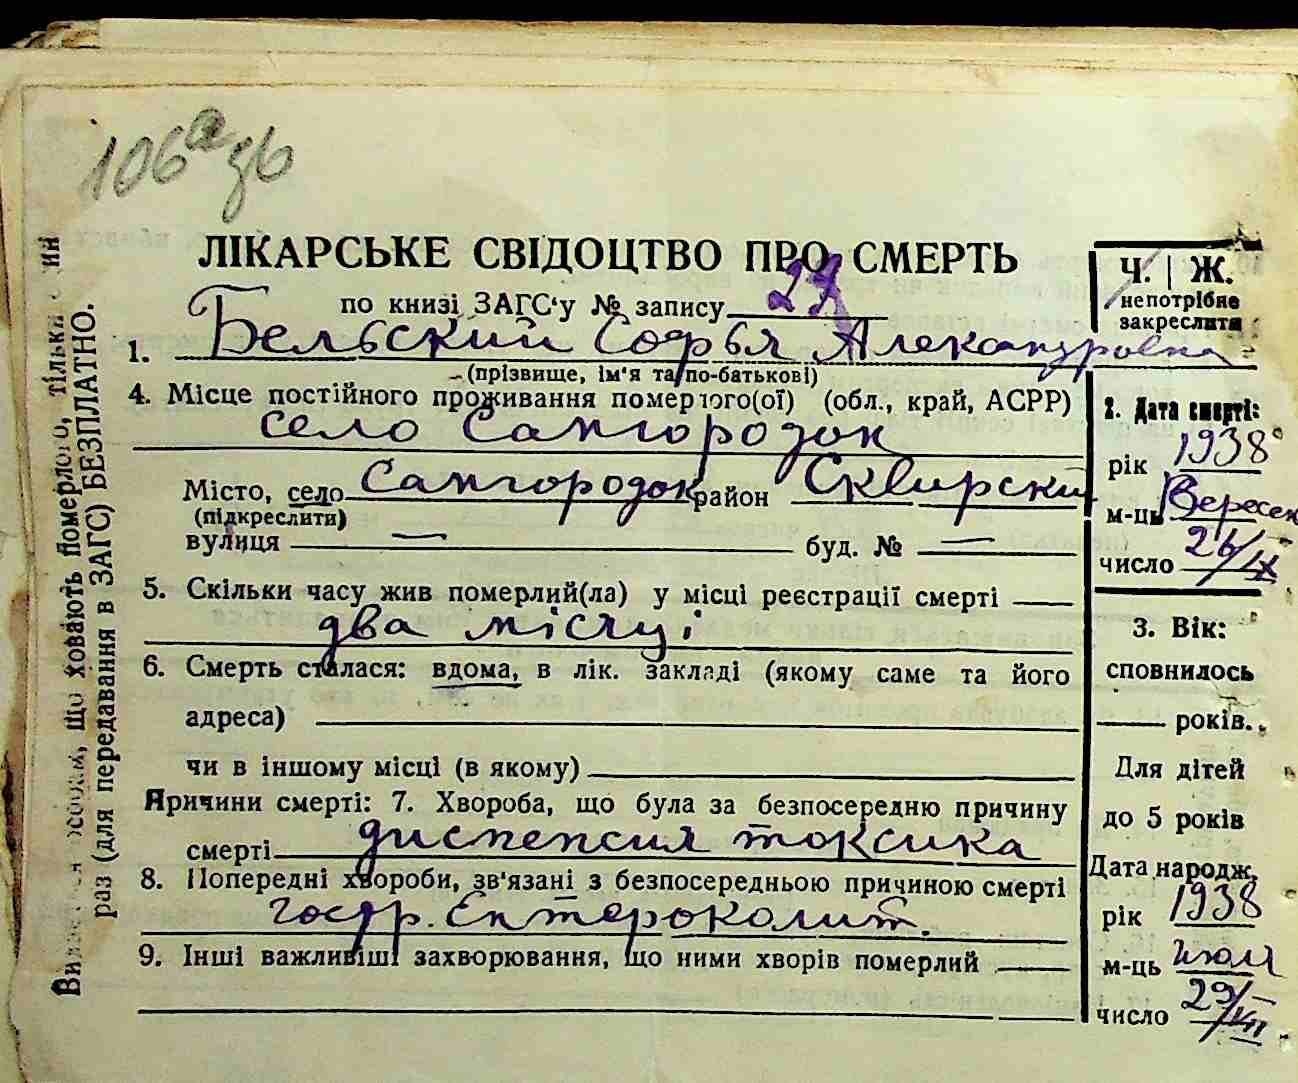 106а
ЛІКАРСЬКЕ СВІДОЦТВО ПРО СМЕРТЬ
по книзі ЗАГС'у № запису 27
Ч. | Ж.
непотрібне
закреслити
1. Бельский Софья Александровна
(прізвище, ім'я та по-батькові)
4. Місце постійного проживання померлого(ої) (обл., край, АСРР)
село Самгородок
Місто, село Самгородок район Сквирский
(підкреслити)
вулиця — буд. № —
5. Скільки часу жив померлий(ла) у місці реєстрації смерті
два місяці
6. Смерть сталася: вдома, в лік. закладі (якому саме та його
адреса)
чи в іншому місці (в якому)
Причини смерті: 7. Хвороба, що була за безпосередню причину
смерті диспепсия токсика
8. Попередні хвороби, зв'язані з безпосередньою причиною смерті
гостр. Ентероколит.
9. Інші важливіші захворювання, що ними хворів померлий
2. Дата смерті:
рік 1938
м-ць Вересень
число 26/IX
3. Вік:
сповнилось
років.
Для дітей
до 5 років
Дата народж.
рік 1938
м-ць июля
число 29/VII
що ховають померлого, тільки
раз (для передавання в ЗАГС) БЕЗПЛАТНО.